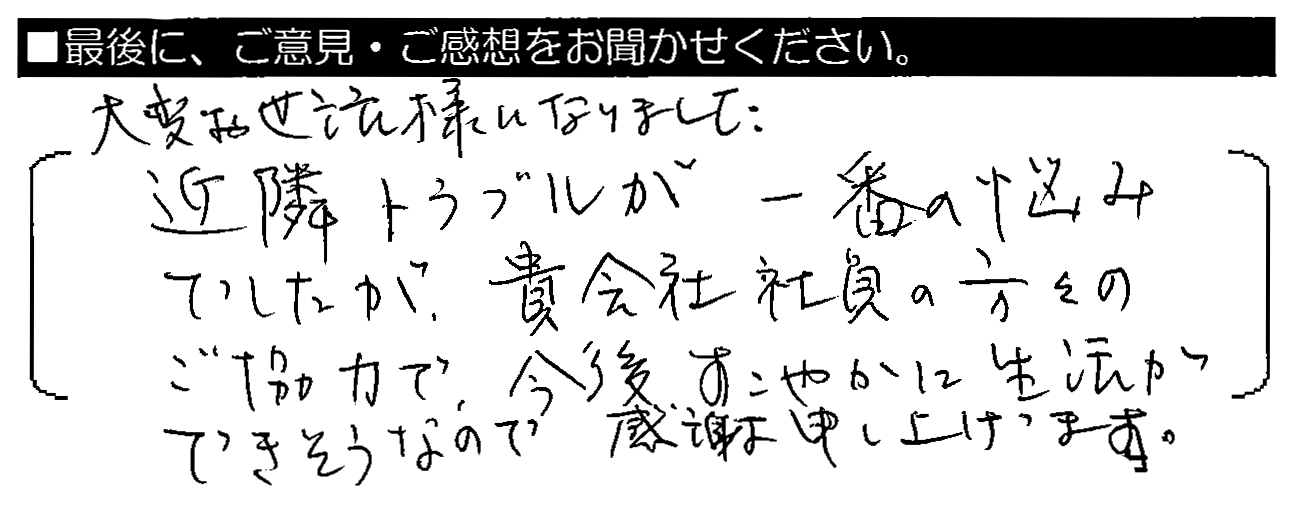 ■最後に、ご意見・ご感想をお聞かせください。
大変お世話様になりました。
近隣トラブルが一番の悩み
でしたが、貴会社社員の方々の
ご協力で、今後すこやかに生活が
できそうなので感謝申し上げます。